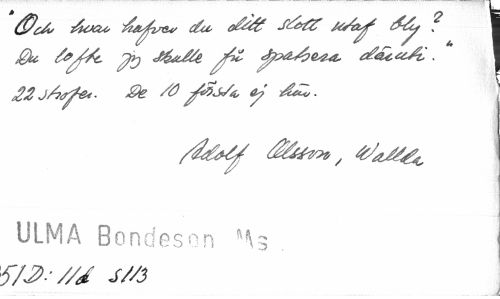 "Och hvar hafver du ditt slott utaf bly?
Du lofte jg skulle få spatsera däruti."
22 strofer. De 10 första ej här.
Adolf Olsson, Wallda
ULMA Bondeson Ms
351D: 11d s113